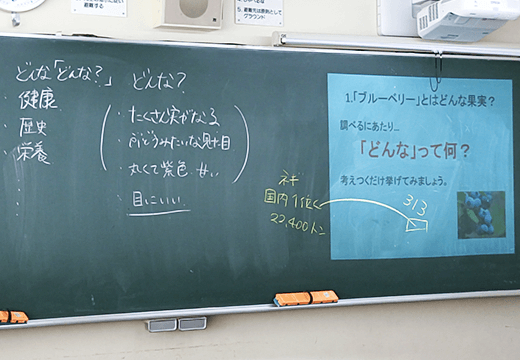 どんな「どんな？」
・健康
・歴史
・栄養
どんな？
・たくさん実がなる
・ぶどうみたいな見た目
・丸くて紫色
・目にいい
ネギ
国内1位
22,400トン
313
1.「ブルーベリー」とはどんな果実？
調べるにあたり…
「どんな」って何？
考えつくだけ挙げてみましょう。
避難する
5.避難先は原則として
グラウンド！